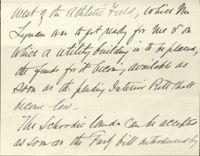 ment of the Athletic Field, which Mr.
Lynam was to get ready for me & on
which a utility building is to be placed,
the funds for it becoming available as
soon as the pending Interior Bill shall
become law.
The Schoodic lands can be accepted
as soon as the Park bill introduced by